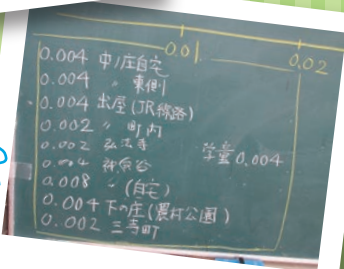 0.01 0.02
0.004 中ノ庄自宅
0.004 〃 東側
0.004 出屋(JR線路)
0.002 〃 町内
0.002 弘法寺
0.004 神泉谷
0.008 〃 (自宅)
0.004 下の庄(農村公園)
0.002 三寺町
学童 0.004